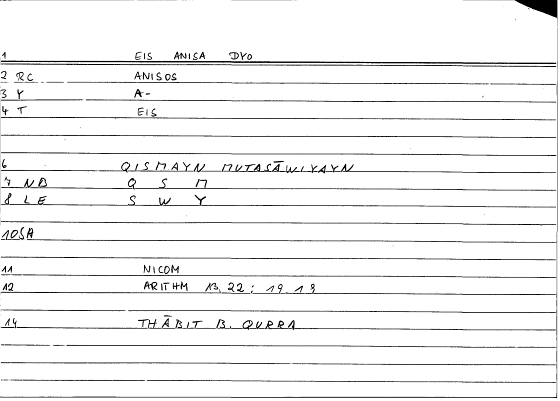 1 EIS ANISA DYO
2 RC ANISOS
3 Y A-
4 T EIS
6 QISMAYN MUTASĀWIYAYN
7 NB Q S M
8 LE S W Y
10 SA
11 NICOM
12 ARITHM 13, 22 : 19. 19
14 THĀBIT B. QURRA